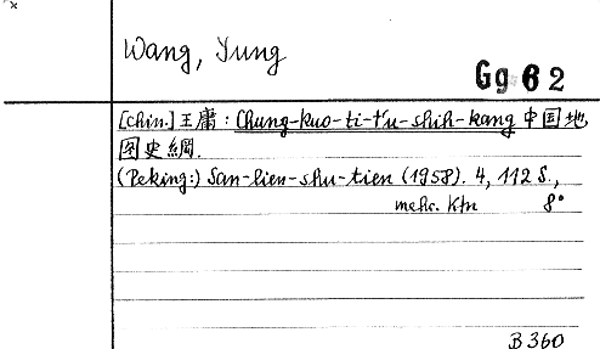 Wang, Yung
Gg 62
[chin.] 王庸: Chung-kuo-ti-t'u-shih-kang 中国地
图史綱.
(Peking:) San-lien-shu-tien (1958). 4, 112 S.,
mehr. Ktn 8°
B 360